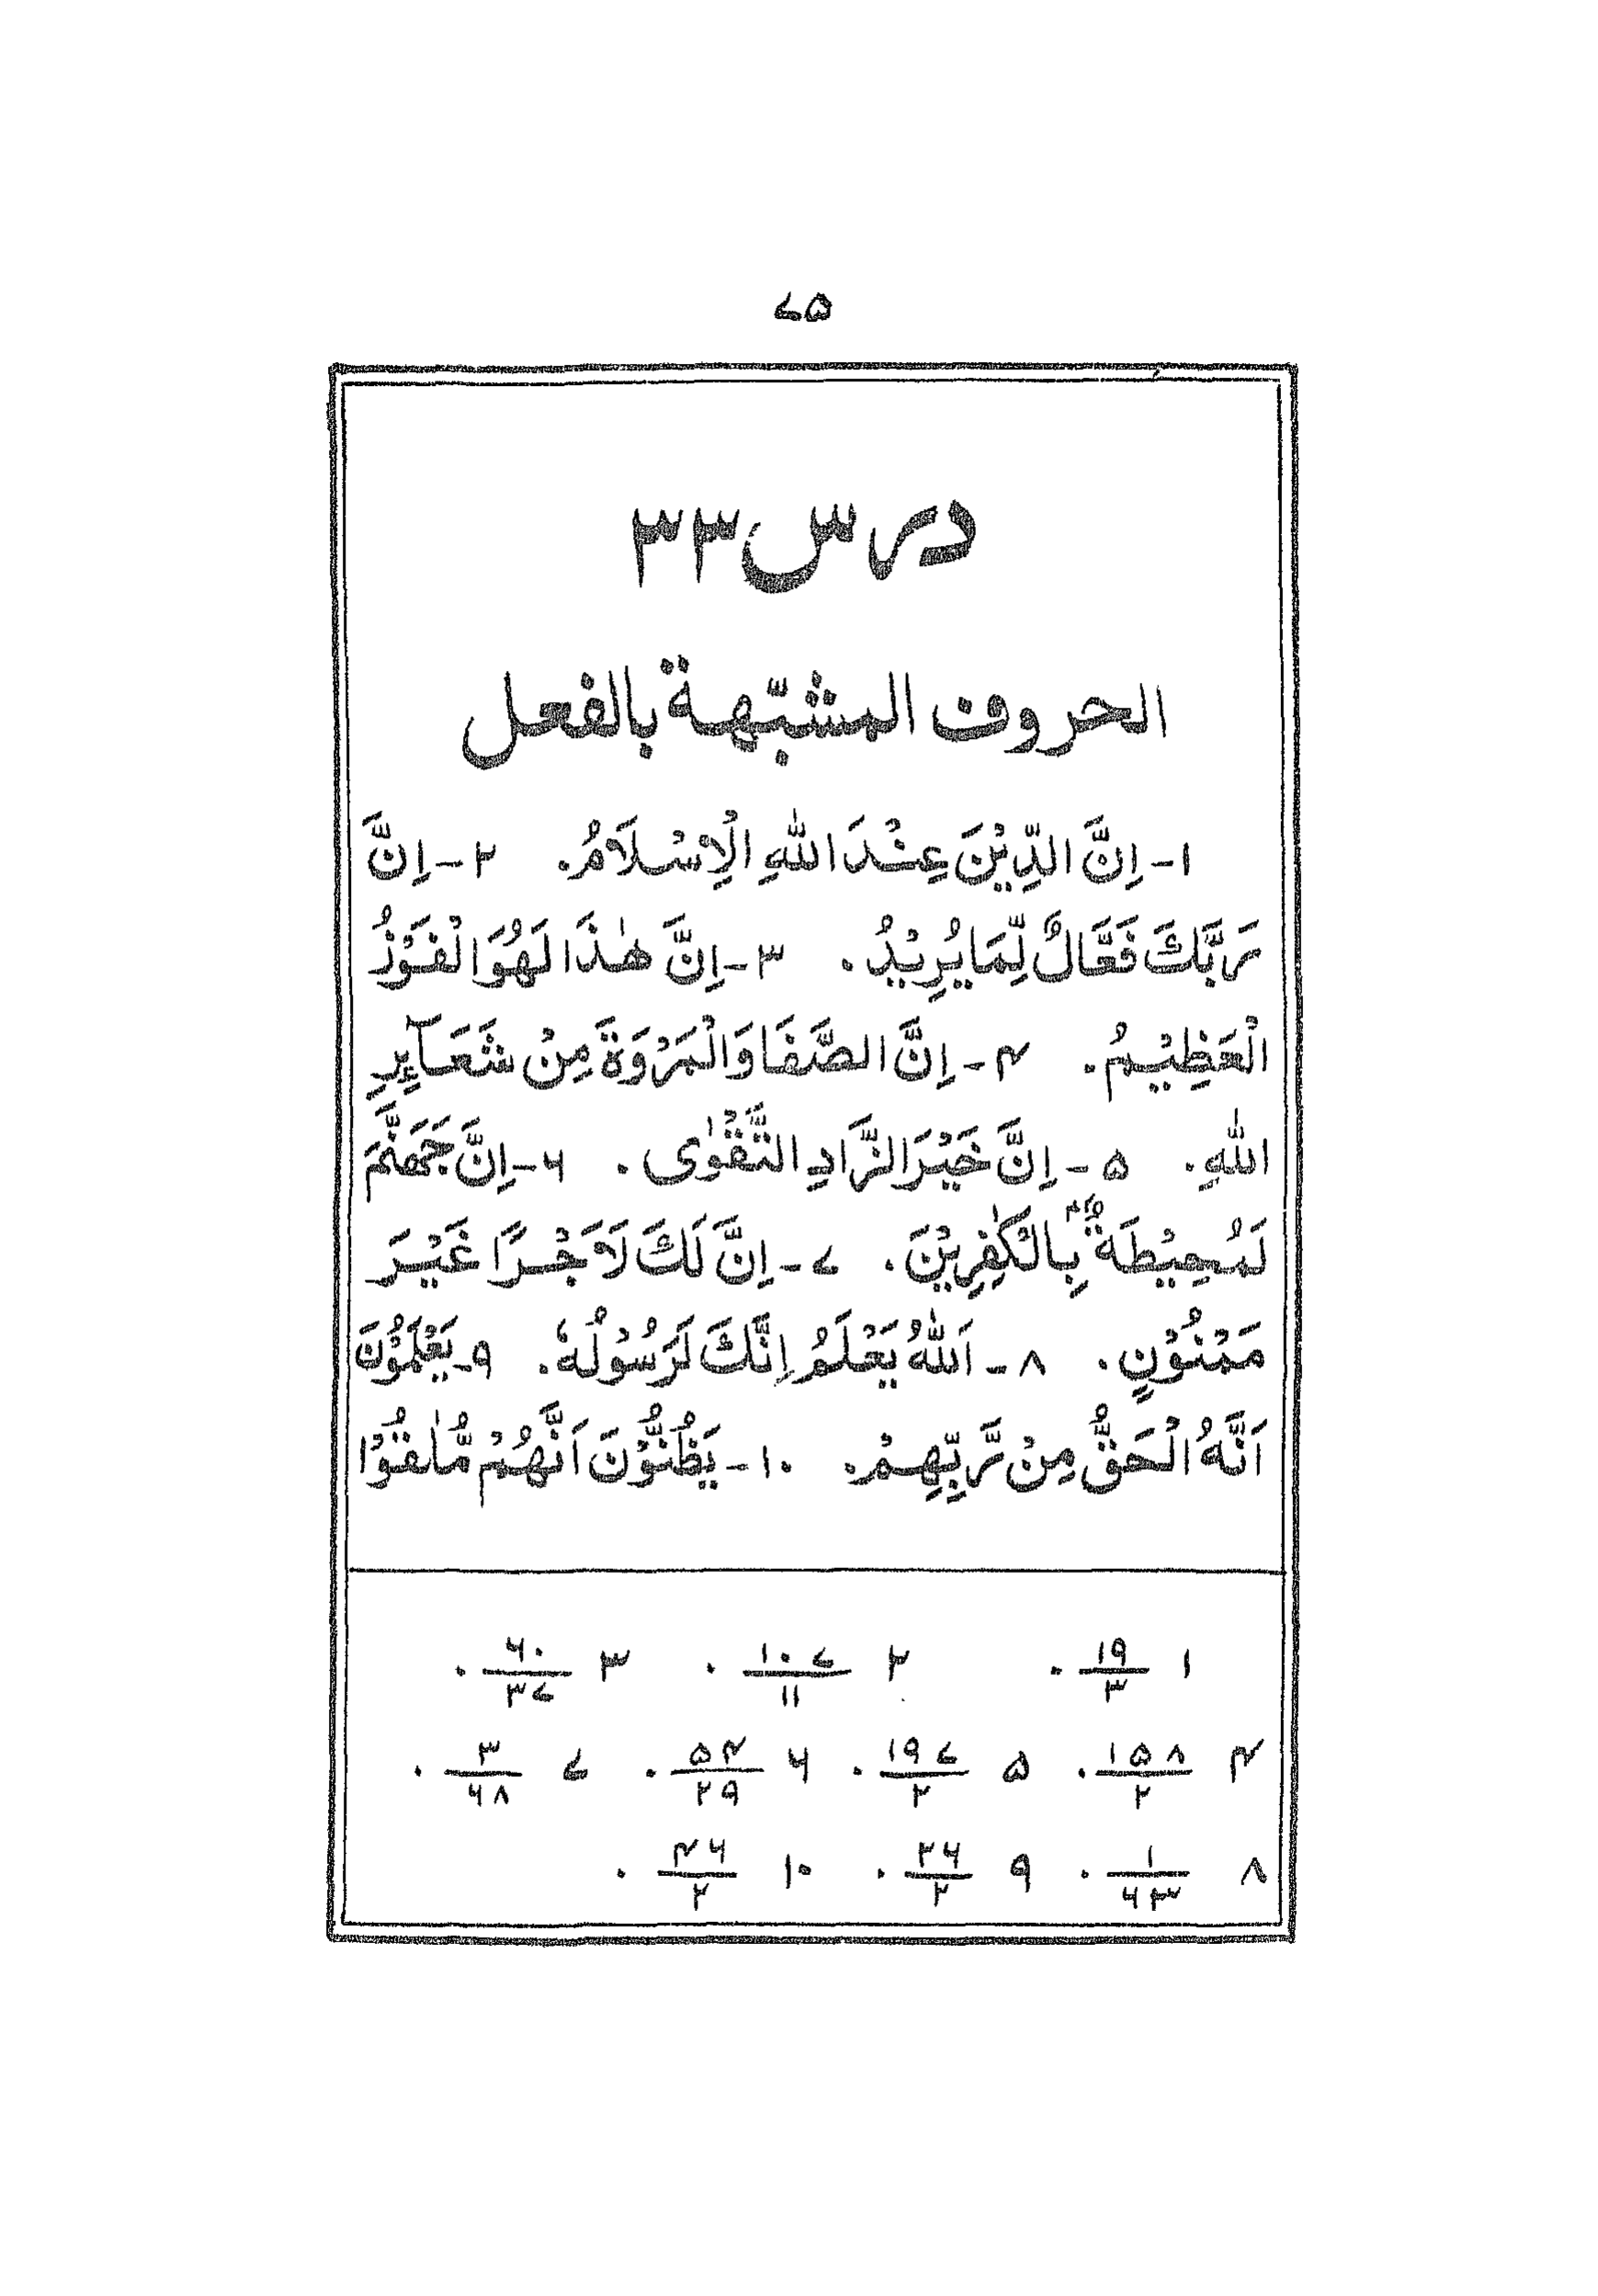 ۷۵
درس ۳۳
الحروف المشبّهة بالفعل
۱- اِنَّ الدِّيْنَ عِنْدَ اللّٰهِ الْاِسْلَامُ. ۲- اِنَّ
رَبَّكَ فَعَّالٌ لِّمَا يُرِيْدُ. ۳- اِنَّ هٰذَا لَهُوَ الْفَوْزُ
الْعَظِيْمُ. ۴- اِنَّ الصَّفَا وَالْمَرْوَةَ مِنْ شَعَآئِرِ
اللّٰهِ. ۵- اِنَّ خَيْرَ الزَّادِ التَّقْوٰى. ۶- اِنَّ جَهَنَّمَ
لَمُحِيْطَةٌۢ بِالْكٰفِرِيْنَ. ۷- اِنَّ لَكَ لَاَجْرًا غَيْرَ
مَمْنُوْنٍ. ۸- اَللّٰهُ يَعْلَمُ اِنَّكَ لَرَسُوْلُهٗ. ۹- يَعْلَمُوْنَ
اَنَّهُ الْحَقُّ مِنْ رَّبِّهِمْ. ۱۰- يَظُنُّوْنَ اَنَّهُمْ مُّلٰقُوْا
۱ ۱۹/۳. ۲ ۱۰۷/۱۱. ۳ ۶۰/۳۷.
۴ ۱۵۸/۲. ۵ ۱۹۷/۲. ۶ ۵۴/۲۹. ۷ ۳/۶۸.
۸ ۱/۶۳. ۹ ۲۶/۲. ۱۰ ۴۶/۲.